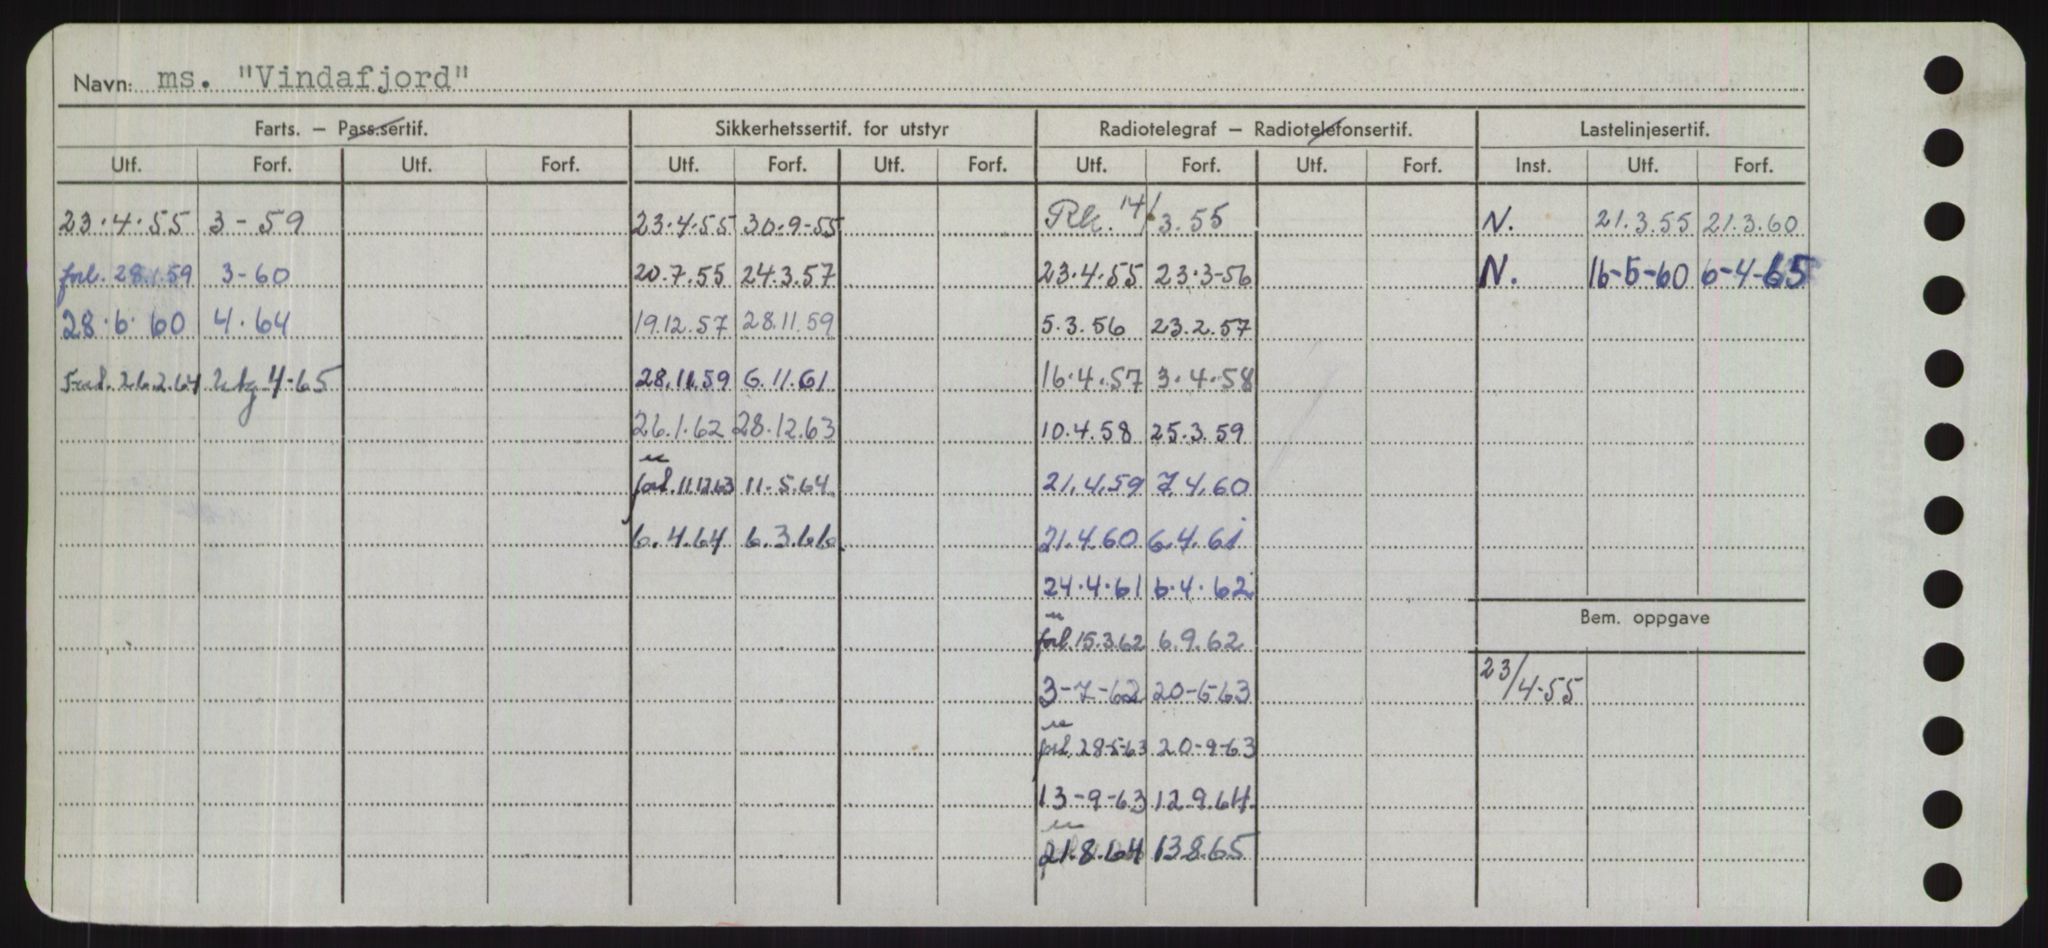 Navn: ms. "Vindafjord"
Farts. – Pass.sertif. Sikkerhetssertif. for utstyr Radiotelegraf – Radiotelefonsertif. Lastelinjesertif.
Utf. Forf. Utf. Forf. Utf. Forf. Utf. Forf. Utf. Forf. Utf. Forf. Inst. Utf. Forf.
23.4.55 3-59 23.4.55 30.9-55 Rk. 14/3.55 N. 21.3.55 21.3.60
forl. 28.1.59 3-60 20.7.55 24.3.57 23.4.55 23.3-56 N. 16-5-60 6-4-65
28.6.60 4.64 19.12.57 28.11.59 5.3.56 23.2.57
Forl. 26.2.64 utg 4-65 28.11.59 6.11.61 16.4.57 3.4.58
26.1.62 28.12.63 10.4.58 25.3.59
forl. 11.12.63 11.5.64 21.4.59 7.4.60
6.4.64 6.3.66 21.4.60 6.4.61
24.4.61 6.4.62
Bem. oppgave
forl. 15.3.62 6.9.62
3-7-62 20-6-63 23/4-55
forl. 28-5-63 20-9-63
13-9-63 12.9.64
21.8.64 13.8.65